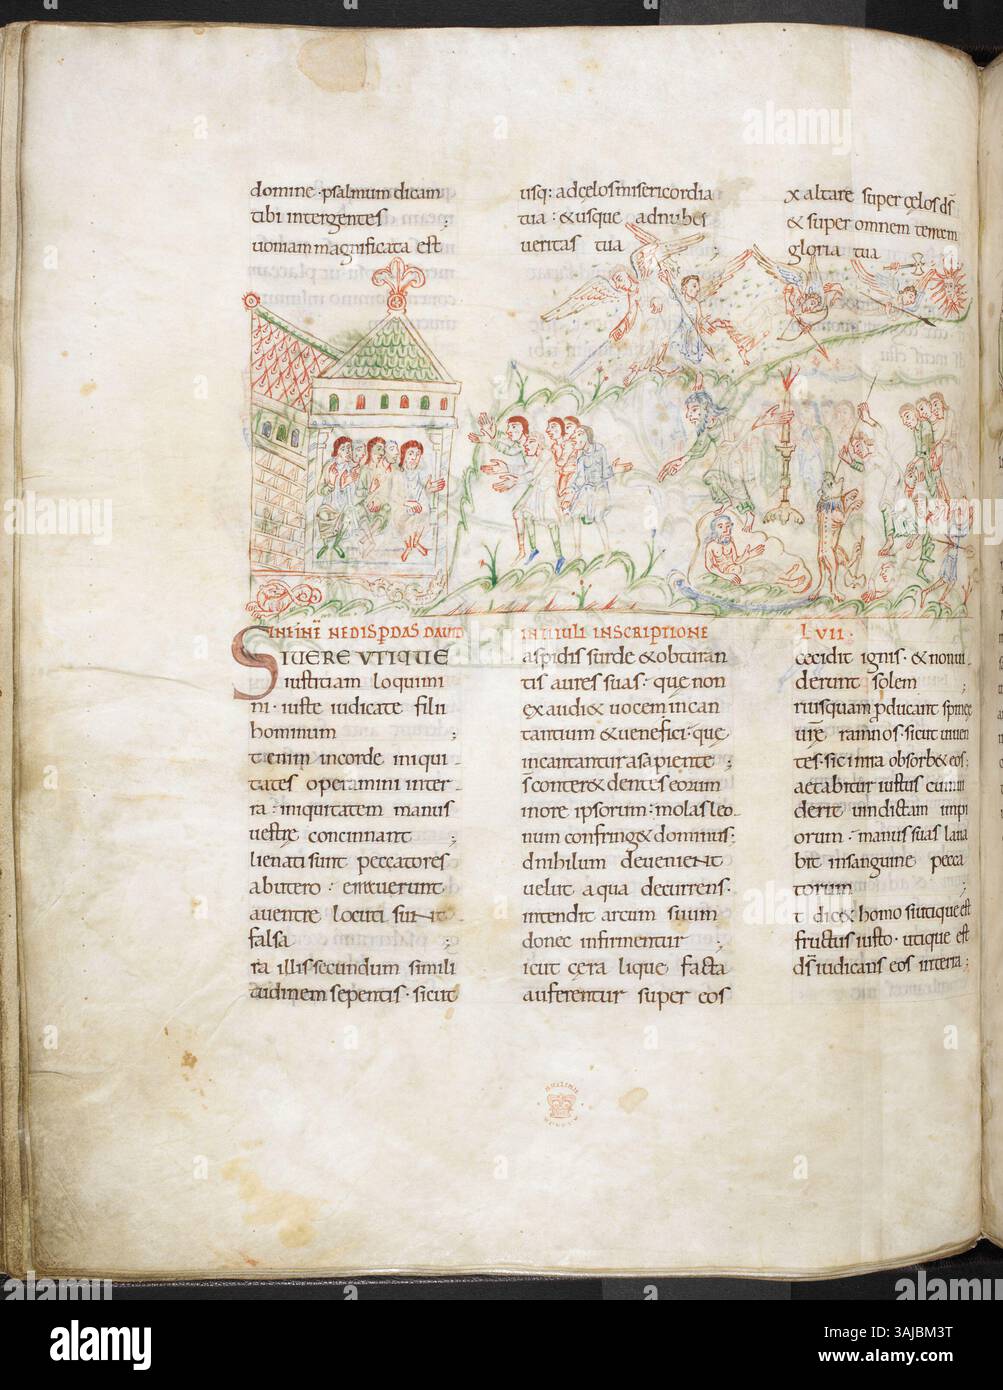 domine · psalmum dicam
tibi inter gentes ;
uoniam magnificata est
usq: ad cęlos misericordia
tua : & usque ad nubes
ueritas tua
xaltare super cęlos ds̄
& super omnem terram
gloria tua
INFINĒ NE DISPDAS DAUID
IN TITULI INSCRIPTIONE
LVII ·
SI UERE UTIQUE
iustitiam loquimi
ni · iuste iudicate filii
hominum ;
tenim in corde iniqui
tates operamini in ter
ra : iniquitatem manus
uestrę concinnant ;
lienati sunt peccatores
ab utero : errauerunt
a uentre locuti sunt
falsa
ra illis secundum simili
tudinem serpentis · sicut
aspidis surdę & obturan
tis aures suas : quę non
exaudi& uocem incan
tantium & uenefici : quę
incantantur a sapiente ;
s conter& dentes eorum
in ore ipsorum : molas leo
num confring& dominus ;
d nihilum deuenient
uelut aqua decurrens :
intendit arcum suum
donec infirmentur ;
icut cęra liquefacta
auferentur super eos
cecidit ignis · & non ui
derunt solem ;
riusquam producant spinę
ur̄ē ramnos · sicut uiuen
tes · sic in ira obsorb& eos ;
aetabitur iustus cum
derit uindictam impi
orum · manus suas laua
bit in sanguine pecca
torum ;
t dic& homo si utique est
fructus iusto · utique est
ds̄ iudicans eos in terra ;
alamy
Image ID: 3AJBM3T
www.alamy.com